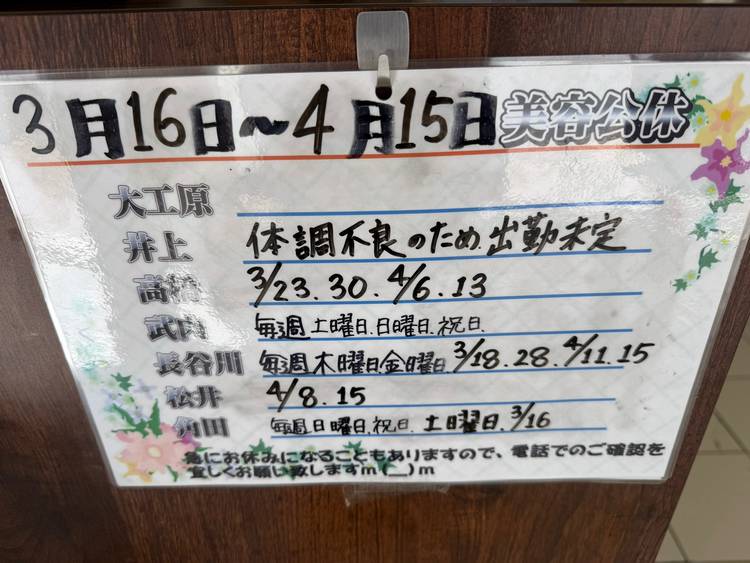 3月16日～4月15日 美容公休
大工原
井上 体調不良のため、出勤未定
高橋 3/23.30.4/6.13
武内 毎週土曜日、日曜日、祝日、
長谷川 毎週木曜日、金曜日、3/18.28.4/11.15
松井 4/8.15
角田 毎週日曜日、祝日、土曜日、3/16
急にお休みになることもありますので、電話でのご確認を
宜しくお願い致しますm(__)m